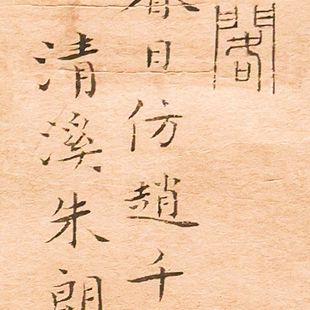 閣
春日仿趙千
清溪朱朗